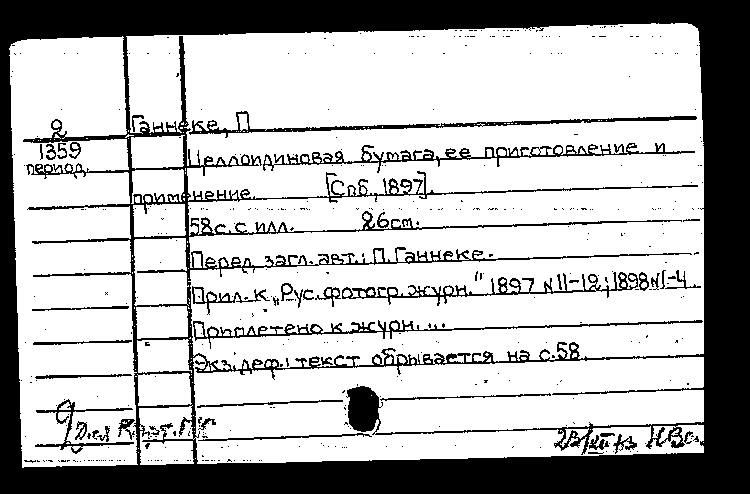 2
1359
период.
Ганнеке, П
Целлоидиновая бумага, ее приготовление и
применение. [Спб., 1897].
58с. с илл. 26см.
Перед загл. авт.: П. Ганнеке.
Прил. к „Рус. фотогр. журн." 1897 №11-12; 1898 №1-4
Приплетено к журн. ...
Экз. деф.: текст обрывается на с. 58.